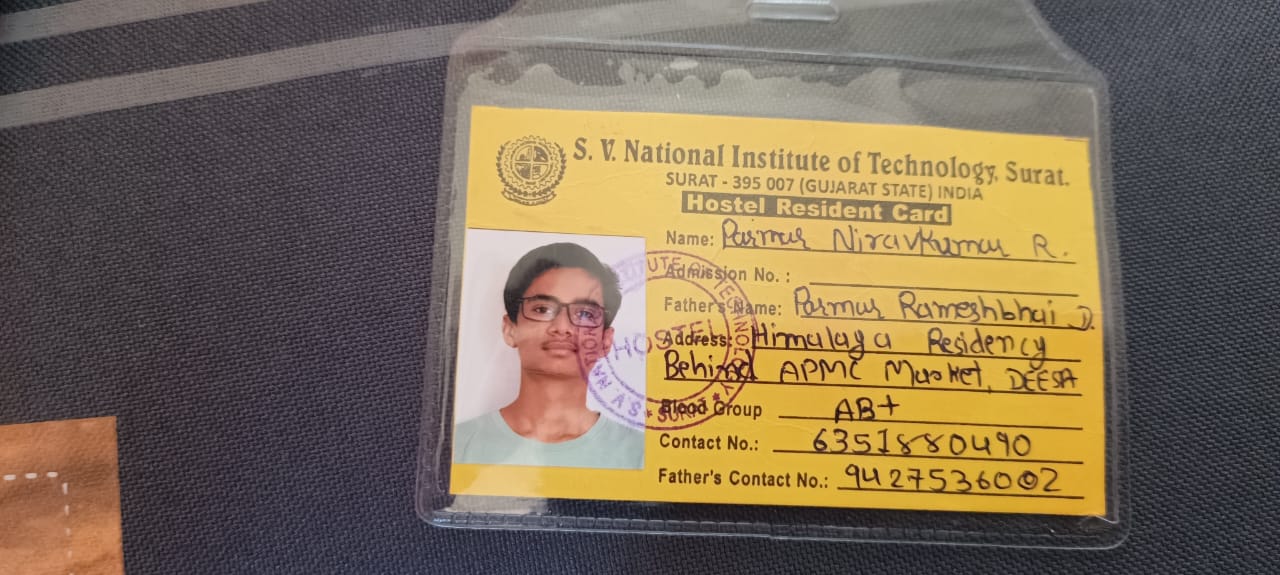 S. V. National Institute of Technology, Surat.
SURAT - 395 007 (GUJARAT STATE) INDIA
Hostel Resident Card
Name: Parmar Niravkumar R.
Admission No. :
Father's Name: Parmar Rameshbhai D.
Address: Himalaya Residency
Behind APMC Market, DEESA
Blood Group AB+
Contact No.: 6351880490
Father's Contact No.: 9427536002
HOSTEL
SURAT